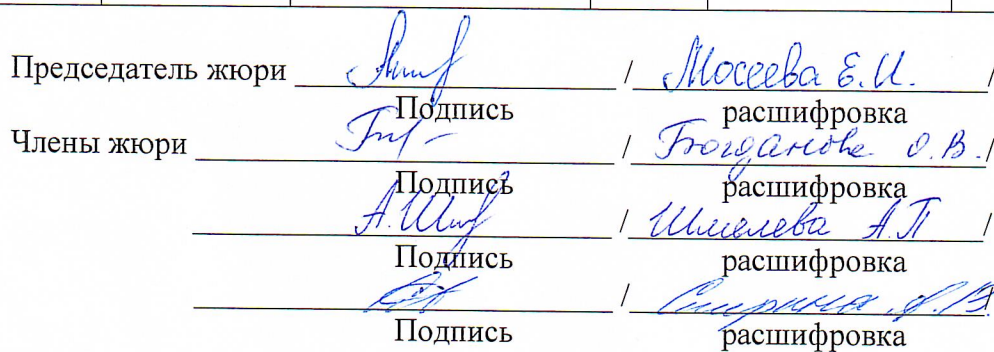 Председатель жюри / Мосеева Е.И. /
Подпись расшифровка
Члены жюри / Богданова О.В. /
Подпись расшифровка
А.Шм / Шмелева А.П /
Подпись расшифровка
/
Подпись расшифровка